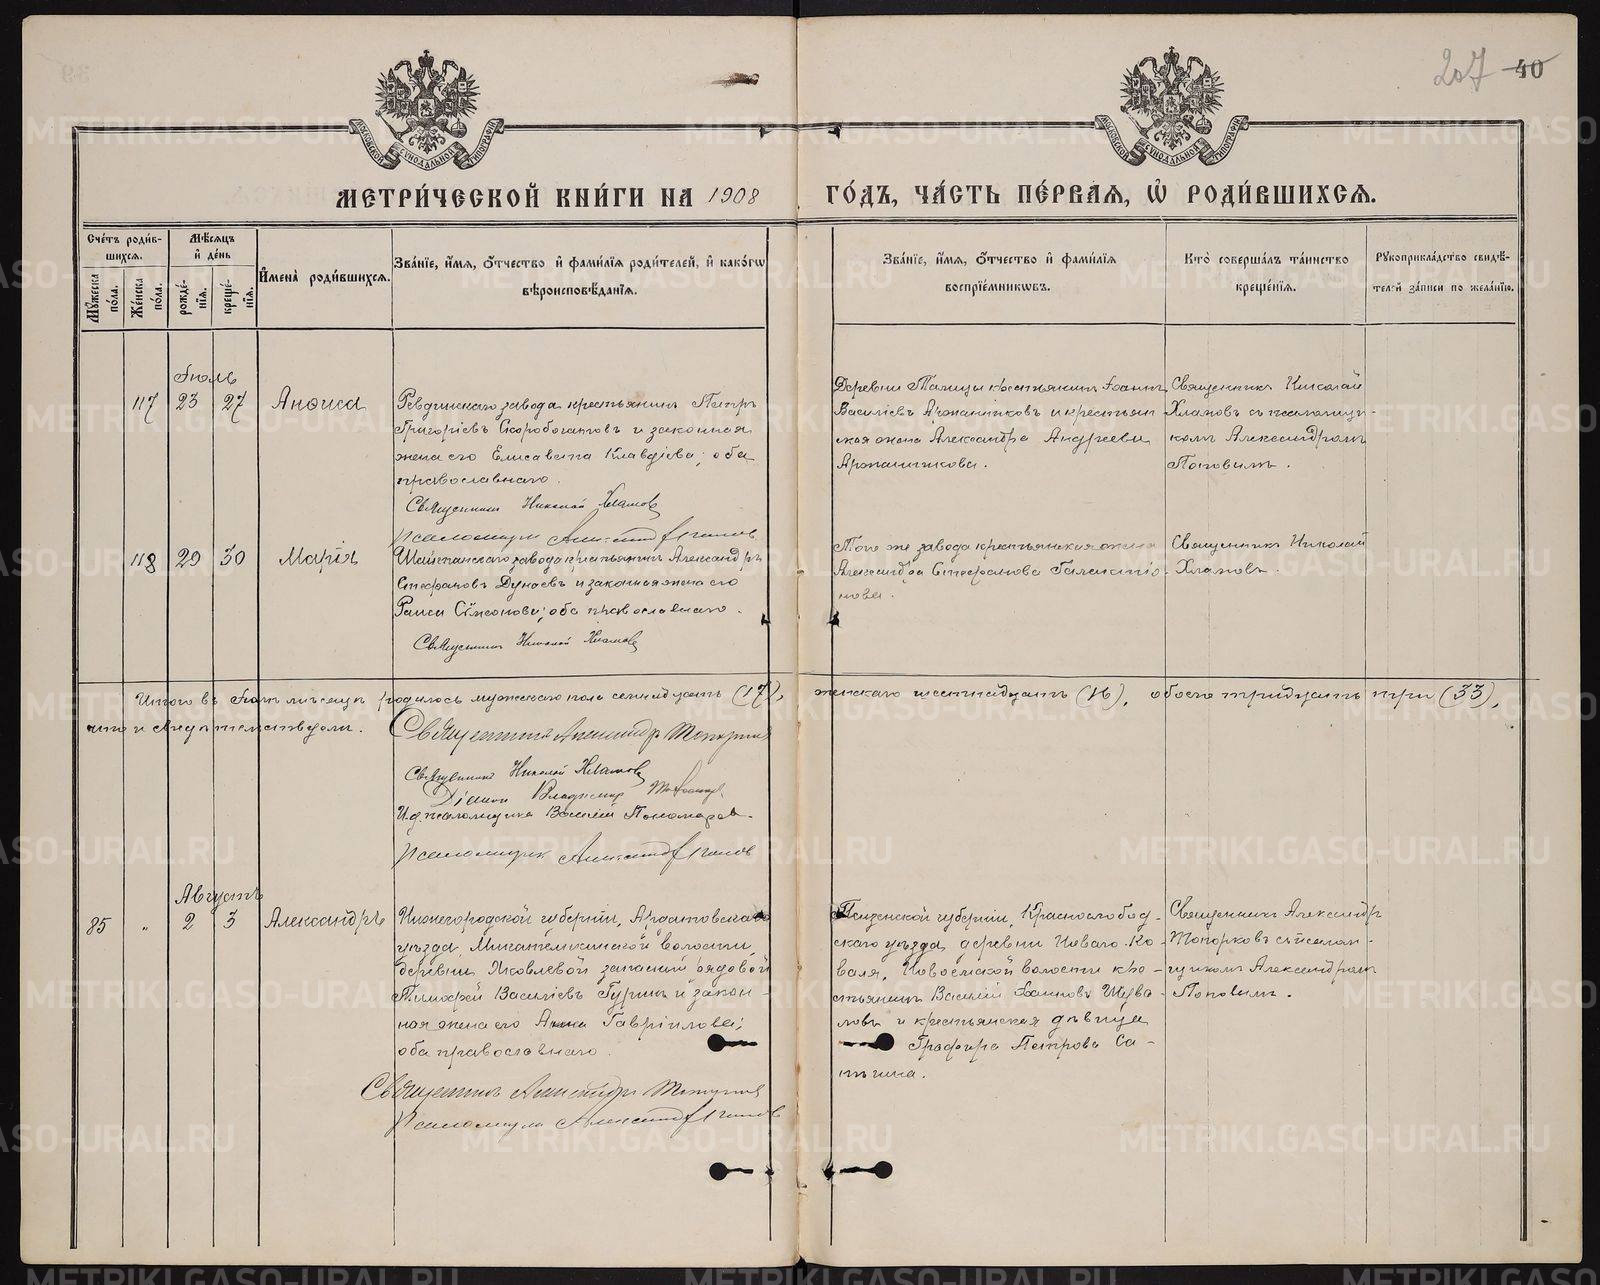 207 40
МОСКОВСКОЙ СѴНОДАЛЬНОЙ ТИПОГРАФІИ
МОСКОВСКОЙ СѴНОДАЛЬНОЙ ТИПОГРАФІИ
МЕТРИ́ЧЕСКОЙ КНИ́ГИ НА 1908 ГО́ДЪ, ЧА́СТЬ ПЕ́РВАЯ, Ѡ҆ РОДИ́ВШИХСЯ.
Сче́тъ роди́в-
шихся.
Мꙋ́жеска по́ла.
Же́нска по́ла.
Мѣ́сяцъ
и҆ де́нь
рожде́-
нїя.
креще́-
нїя.
И҆мена̀ роди́вшихся.
Зва́нїе, и҆́мя, ѻ҆́тчество и҆ фами́лїя роди́телей, и҆ како́гѡ
вѣроисповѣ́данїя.
Зва́нїе, и҆́мя, ѻ҆́тчество и҆ фами́лїя
воспрїе́мникѡвъ.
Кто̀ соверша́лъ та́инство
креще́нїя.
Рꙋкоприкла́дство свидѣ́-
телей за́писи по жела́нїю.
Іюль
117 23 27 Анѳиса
Ревдинскаго завода крестьянинъ Петръ
Григоріевъ Скоробогатовъ и законная
жена его Елисавета Клавдіева; оба
православнаго.
Священникъ Николай Хламовъ
Псаломщикъ Александръ Поповъ
Деревни Талицы крестьянинъ Іоаннъ
Василіевъ Аржанниковъ и крестьян
ская жена Александра Андреева
Аржанникова.
Священникъ Николай
Хламовъ съ псаломщи-
комъ Александромъ
Поповымъ.
118 29 30 Марія
Шайтанскаго завода крестьянинъ Александръ
Стефановъ Дунаевъ и законная жена его
Раиса Сѵмеонова; оба православнаго.
Священникъ Николай Хламовъ
Того же завода крестьянская жена
Александра Стефанова Галактіо-
нова.
Священникъ Николай
Хламовъ.
Итого въ Іюлѣ мѣсяцѣ родилось мужескаго пола семнадцать (17), женскаго шестнадцать (16), обоего тридцать три (33),
что и свидѣтельствуемъ.
Священникъ Александръ Топорковъ
Священникъ Николай Хламовъ
Діаконъ Владимір
И.д. псаломщика Василій Пономаревъ.
Псаломщикъ Александръ Поповъ
Августъ
85 „ 2 3 Александръ
Нижегородской губерніи, Ардатовскаго
уѣзда, Личадеевской волости,
деревни Яковлевой запасный рядовой
Тимоѳей Василіевъ Гуринъ и закон-
ная жена его Анна Гавріилова;
оба православнаго.
Священникъ Александръ Топорковъ
Псаломщикъ Александръ Поповъ
Пензенской губерніи, Краснослобод-
скаго уѣзда деревни Новаго Ко-
валя, Новоямской волости кре-
стьянинъ Василій Іоанновъ Шува-
ловъ и крестьянская дѣвица
Глафира Петрова Са-
Священникъ Александръ
Топорковъ съ псалом-
щикомъ Александромъ
Поповымъ.
METRIKI.GASO-URAL.RU